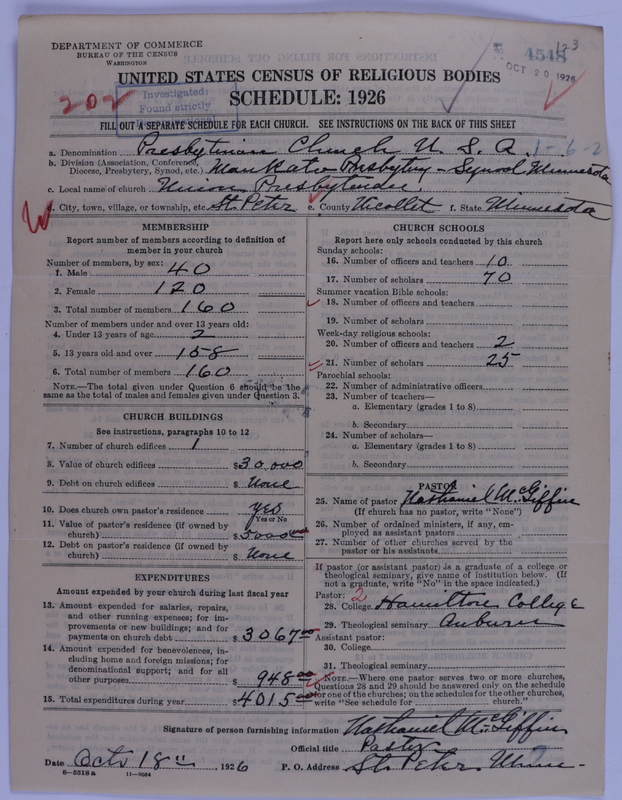 DEPARTMENT OF COMMERCE
BUREAU OF THE CENSUS
WASHINGTON
4548
123
OCT 20 1926
UNITED STATES CENSUS OF RELIGIOUS BODIES
SCHEDULE: 1926
202
Investigated:
Found strictly
FILL OUT A SEPARATE SCHEDULE FOR EACH CHURCH. SEE INSTRUCTIONS ON THE BACK OF THIS SHEET
a. Denomination Presbyterian Church U. S. A. 1-6-2
b. Division (Association, Conference, Diocese, Presbytery, Synod, etc.) Mankato Presbytery - Synod Minnesota
c. Local name of church Union Presbyterian
d. City, town, village, or township, etc. St. Peter e. County Nicollet f. State Minnesota
MEMBERSHIP
Report number of members according to definition of
member in your church
Number of members, by sex:
1. Male 40
2. Female 120
3. Total number of members 160
Number of members under and over 13 years old:
4. Under 13 years of age 2
5. 13 years old and over 158
6. Total number of members 160
NOTE.—The total given under Question 6 should be the
same as the total of males and females given under Question 3.
CHURCH BUILDINGS
See instructions, paragraphs 10 to 12
7. Number of church edifices 1
8. Value of church edifices $30,000
9. Debt on church edifices $ None
10. Does church own pastor's residence yes
Yes or No
11. Value of pastor's residence (if owned by
church) $5000.00
12. Debt on pastor's residence (if owned by
church) $ None
EXPENDITURES
Amount expended by your church during last fiscal year
13. Amount expended for salaries, repairs,
and other running expenses; for im-
provements or new buildings; and for
payments on church debt $3067.00
14. Amount expended for benevolences, in-
cluding home and foreign missions; for
denominational support; and for all
other purposes $ 948.00
15. Total expenditures during year $4015.00
CHURCH SCHOOLS
Report here only schools conducted by this church
Sunday schools:
16. Number of officers and teachers 10
17. Number of scholars 70
Summer vacation Bible schools:
18. Number of officers and teachers
19. Number of scholars
Week-day religious schools:
20. Number of officers and teachers 2
21. Number of scholars 25
Parochial schools:
22. Number of administrative officers
23. Number of teachers—
a. Elementary (grades 1 to 8)
b. Secondary
24. Number of scholars—
a. Elementary (grades 1 to 8)
b. Secondary
PASTOR
25. Name of pastor Nathaniel McGiffin
(If church has no pastor, write "None")
26. Number of ordained ministers, if any, em-
ployed as assistant pastors
27. Number of other churches served by the
pastor or his assistants
If pastor (or assistant pastor) is a graduate of a college or
theological seminary, give name of institution below. (If
not a graduate, write "No" in the space indicated.)
Pastor: 2
28. College Hamilton College
29. Theological seminary Auburn
Assistant pastor:
30. College
31. Theological seminary
NOTE.—Where one pastor serves two or more churches,
Questions 28 and 29 should be answered only on the schedule
for one of the churches; on the schedules for the other churches,
write "See schedule for church."
Signature of person furnishing information Nathaniel McGiffin
Official title Pastor
Date Oct 18th, 1926 P. O. Address St. Peter Minn-
6-5518a 11-9664